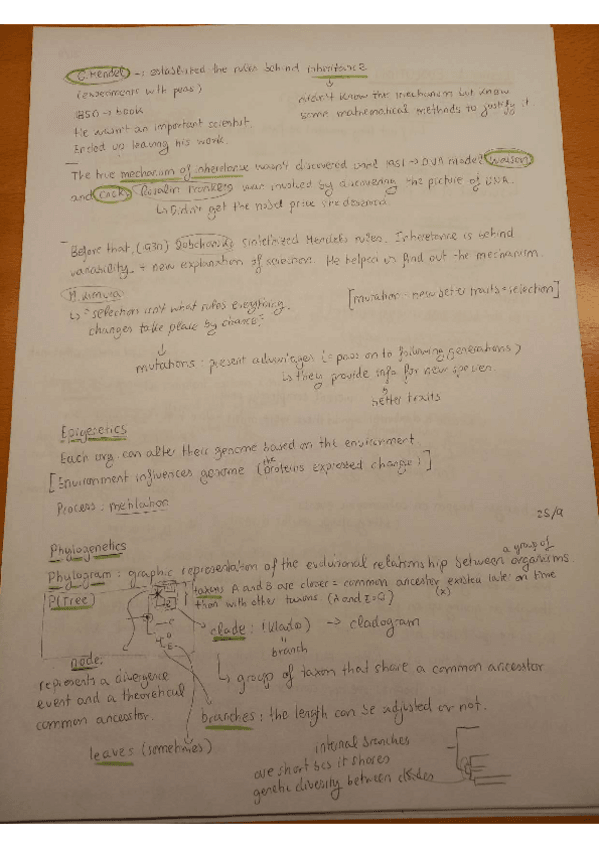 G. Mendel → established the rules behind inheritance
(experiments with peas)
didn't know the mechanism but know
some mathematical methods to justify it.
1850 → book
He wasn't an important scientist.
Ended up leaving his work.
The true mechanism of inheretance wasn't discovered until 1951 → DNA model: Watson
and Crick, Rosalin Franklin was involved by discovering the picture of DNA.
↳ Didn't get the nobel price she deserved
Before that, (1930) Dobzhansky Mendel's rules. Inheretance is behind
variability + new explanation of selection. He helped us find out the mechanism.
M. Kimura:
↳ "selection isn't what rules everything,
changes take place by chance."
[mutation → new better traits → selection]
mutations: present advantages (= pass on to following generations)
↳ they provide info for new species
better traits
Epigenetics
Each org. can alter their genome based on the environment.
[Environment influences genome (the proteins expressed change!]
Process: methilation
25/9
Phylogenetics
Phylogram: graphic representation of the evolutional relationship between a group of organisms.
P(Tree)
taxons A and B are closer = common ancestor existed later on time
than with other taxons. (A and E = Q) (x)
clade: (klados) → cladogram
"
branch
↳ group of taxon that share a common ancesstor
node:
represents a divergence
event and a theoretical
common ancestor.
branches: the length can be adjusted or not.
leaves (sometimes)
internal branches
are short bcs it shares
genetic diversity between clades